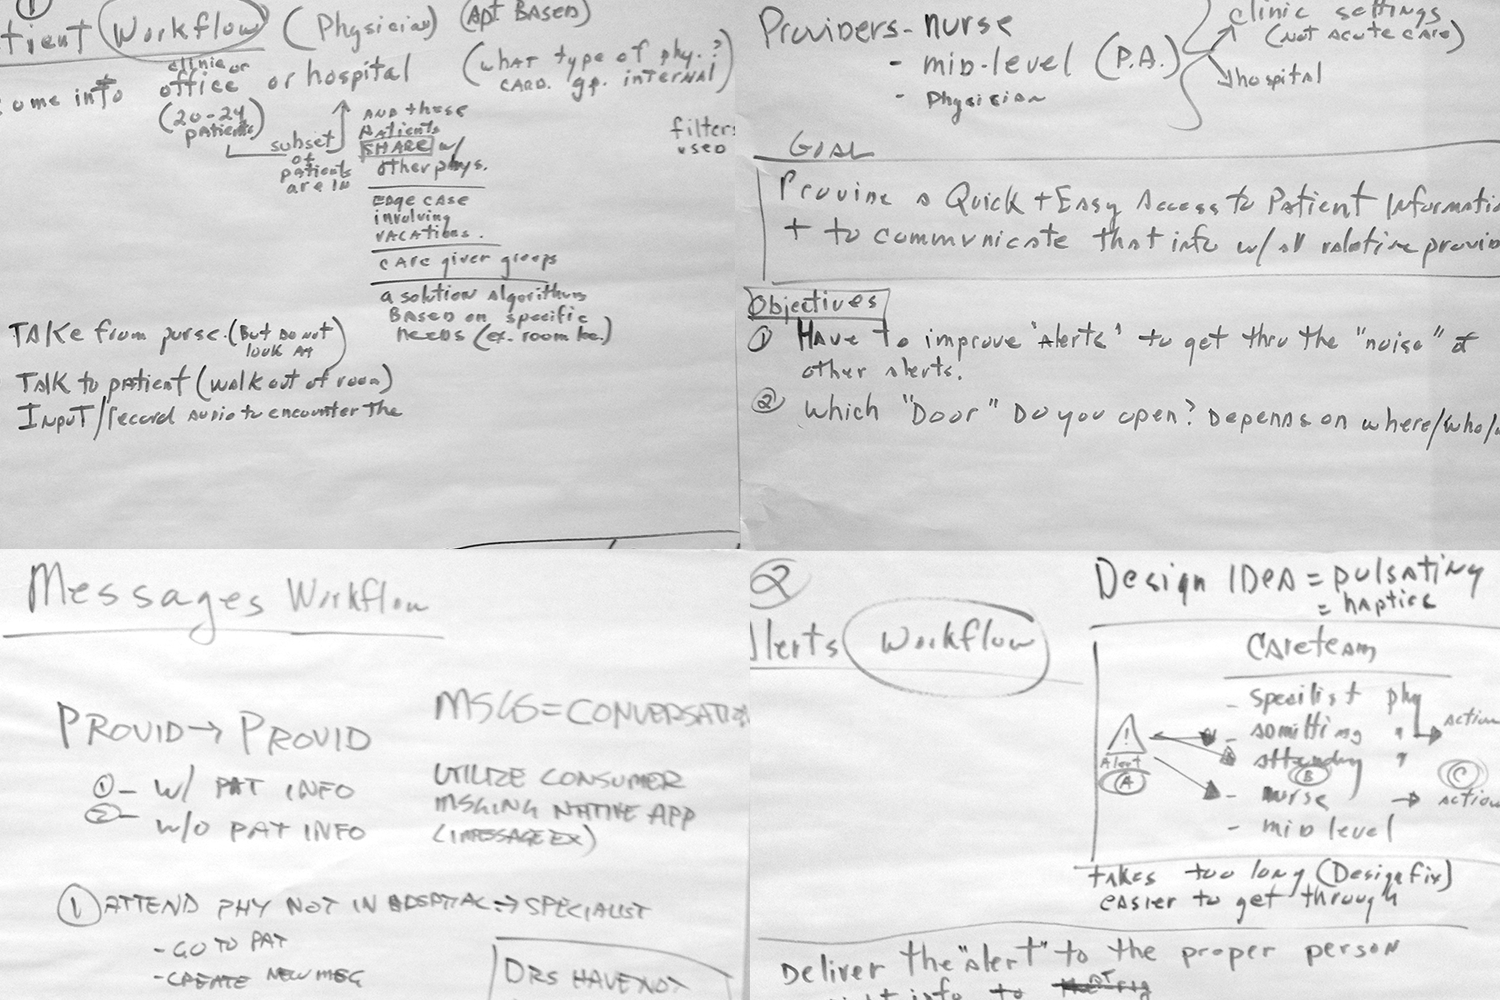 1
tient Workflow (Physician) (Apt BASED)
(what type of phy.?
CARD. gp. internal)
clinic or
ome into office or hospital
(20-24
patients)
subset
of
patients
are in
AND these
Patients
SHARE w/
other phys.
EDGE CASE
involving
VACATIONS.
CARE giver groups
a solution algorithms
BASED on specific
needs (ex. room #.)
filters
used
TAKE from purse. (But DO NOT
look At)
TAlk to patient (walk out of room)
INPUT/record AUDIO to encounter the
Providers- nurse
- mid-level (P.A.)
- Physician
clinic settings
(NOT Acute CARE)
hospital
GOAL
Provide a Quick + Easy Access to Patient Informatio
+ to communicate that info w/ all relative provid
Objectives
① HAVE to improve "Alerts" to get thru the "noise" of
other alerts.
② Which "Door" Do you open? Depends on where/who/
Messages Workflow
PROVID → PROVID
①- W/ PAT INFO
②- W/O PAT INFO
MSGS = CONVERSATION
UTILIZE CONSUMER
MSGING NATIVE APP
(IMESSAGE EX)
① ATTEND PHY NOT IN HOSPITAL → SPECIALIST
- GO TO PAT
- CREATE NEW MSG
DRS HAVE NOT
②
Alerts Workflow
Design IDEA = pulsating
= haptics
CAReteam
- specilist phy
- somitting "
- attending "
- nurse → action
- mid level
action
! Alert
A
B
C
takes too long (Design fix)
easier to get through
Deliver the "alert" to the proper person
info to